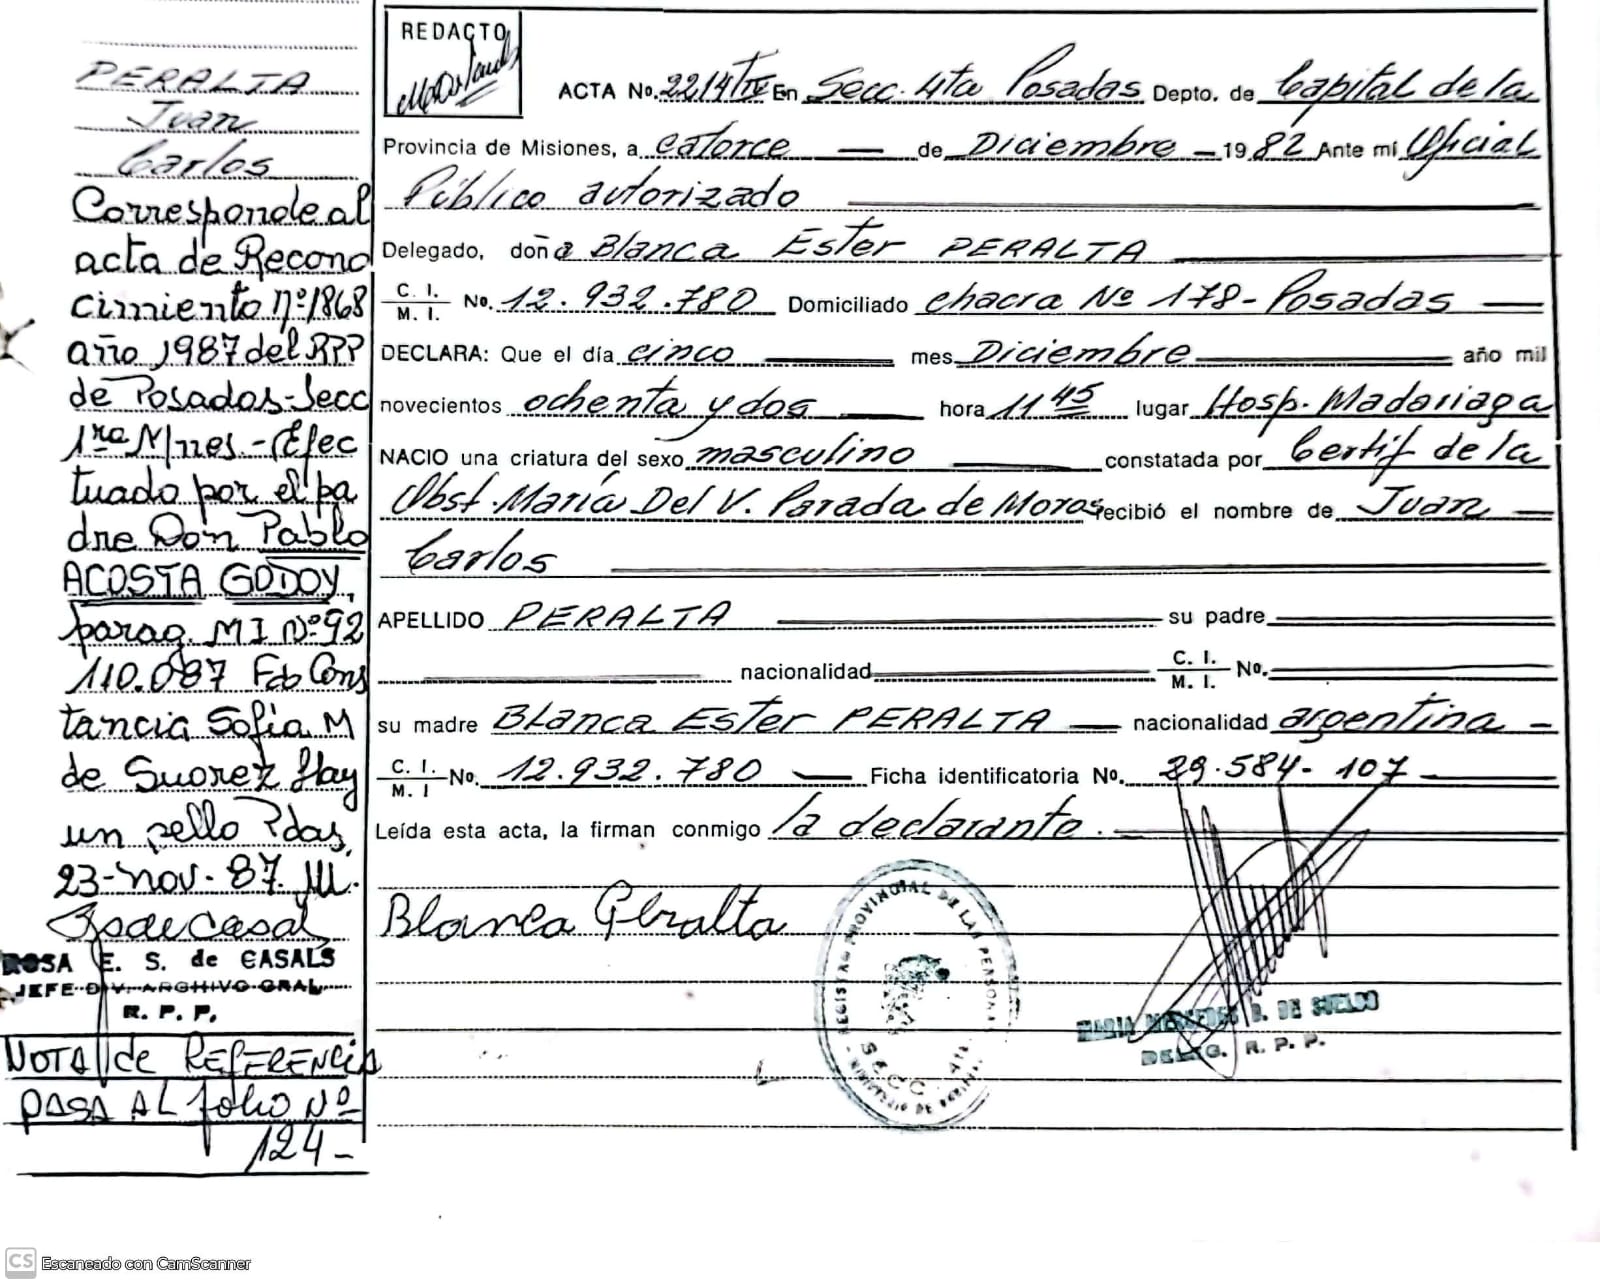 PERALTA
Juan
Carlos
Corresponde al
acta de Recono
cimiento Nº 1868
año 1987 del RPP
de Posadas-Secc
1ra M/nes.-Efec
tuado por el pa
dre Don Pablo
ACOSTA GODOY,
parag. MI Nº 92
110.087 Fdo Cons
tancia Sofia M
de Suarez Hay
un sello Pdas,
23-Nov.-87.
ROSA E. S. de CASALS
JEFE DIV. ARCHIVO GRAL.
R. P. P.
NOTA de REFERENCIA
PASA AL folio Nº
124-
REDACTO
ACTA No. 2214 En Secc. 4ta Posadas Depto. de Capital de la
Provincia de Misiones, a catorce de Diciembre 1982 Ante mi Oficial
Público autorizado
Delegado, doña Blanca Ester PERALTA
C. I.
M. I. No. 12.932.780 Domiciliado chacra Nº 178- Posadas
DECLARA: Que el día cinco mes Diciembre año mil
novecientos ochenta y dos hora 11 45 lugar Hosp. Madariaga
NACIO una criatura del sexo masculino constatada por Certif de la
Obst. María Del V. Parada de Moras recibió el nombre de Juan
Carlos
APELLIDO PERALTA su padre
nacionalidad C. I.
M. I. No.
su madre Blanca Ester PERALTA nacionalidad argentina -
C. I.
M. I No. 12.932.780 Ficha identificatoria No. 29.584-107
Leída esta acta, la firman conmigo la declarante.
Blanca Peralta
REGISTRO PROVINCIAL DE LAS PERSONAS
SECC. 4ta
MARIA MERCEDES B. DE SUELDO
DELEG. R. P. P.
CS Escaneado con CamScanner